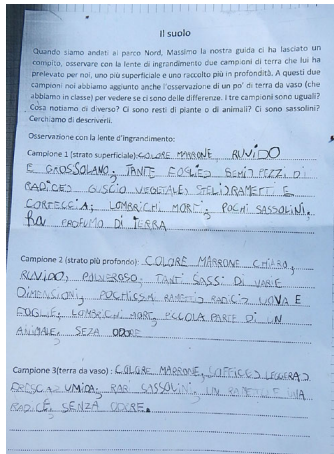 Il suolo
Quando siamo andati al parco Nord, Massimo la nostra guida ci ha lasciato un
compito, osservare con la lente di ingrandimento due campioni di terra che lui ha
prelevato per noi, uno più superficiale e uno raccolto più in profondità. A questi due
campioni noi abbiamo aggiunto anche l'osservazione di un po' di terra da vaso (che
abbiamo in classe) per vedere se ci sono delle differenze. I tre campioni sono uguali?
Cosa notiamo di diverso? Ci sono resti di piante o di animali? Ci sono sassolini?
Cerchiamo di descriverli.
Osservazione con la lente d'ingrandimento:
Campione 1 (strato superficiale): COLORE MARRONE RUVIDO
E GROSSOLANO, TANTE FOGLIE, SEMI, PEZZI DI
RADICE, GUSCIO VEGETALE, STELI, RAMETTI E
CORTECCIA, LOMBRICHI MORTI, POCHI SASSOLINI,
HA PROFUMO DI TERRA
Campione 2 (strato più profondo): COLORE MARRONE CHIARO,
RUVIDO, POLVEROSO, TANTI SASSI DI VARIE
DIMENSIONI, POCHISSIMI RAMETTI, RADICI, UOVA E
FOGLIE, LOMBRICHI MORTI, PICCOLA PARTE DI UN
ANIMALE, SEZA ODORE
Campione 3(terra da vaso) : COLORE MARRONE, SOFFICE, LEGGERA,
FRESCA, UMIDA, RARI SASSOLINI, UN RAMETTO E UNA
RADICE, SENZA ODORE.